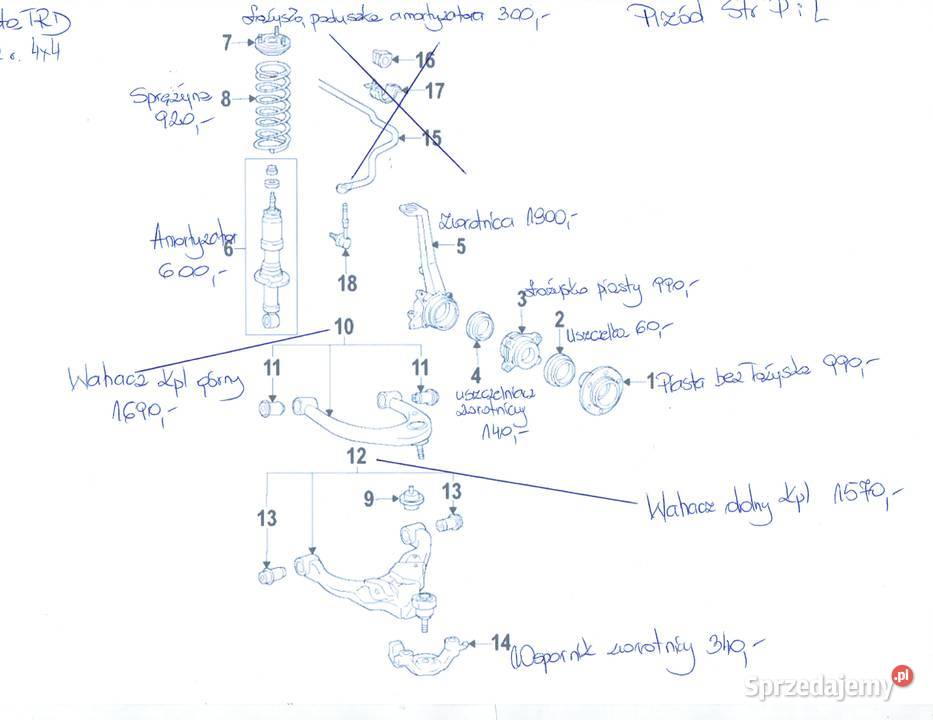 TRD
4x4
Łożysko, poduszka amortyzatora 300,-
Przód Str P i L
7
16
17
Sprężyna 8
920,-
15
Amortyzator
6
600,-
Zwrotnica 1900,-
5
18
Łożysko piasty 990,-
3
2
Uszczelka 60,-
10
11
11
4
1 Piasta bez łożyska 990,-
Wahacz kpl górny
1690,-
uszczelniacz
zwrotnicy
140,-
12
9
13
13
Wahacz dolny kpl 1570,-
14 Wspornik zwrotnicy 340,-
Sprzedajemy.pl